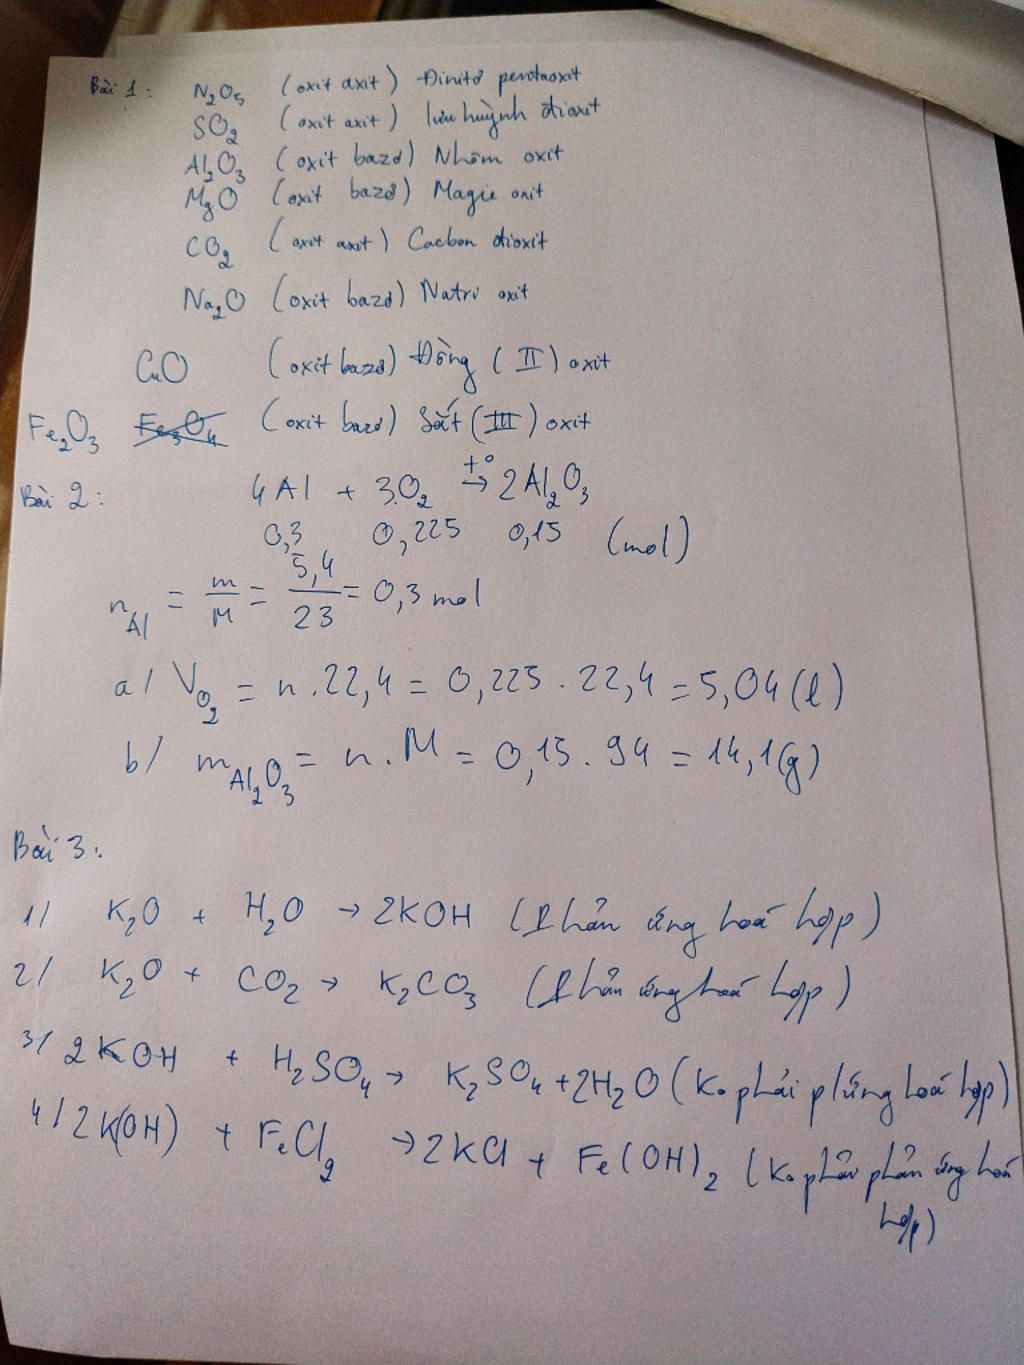 Bài 1:
N₂O₅ (oxit axit) Đinitơ pentaoxit
SO₂ (oxit axit) lưu huỳnh đioxit
Al₂O₃ (oxit bazơ) Nhôm oxit
MgO (oxit bazơ) Magie oxit
CO₂ (oxit axit) Cacbon đioxit
Na₂O (oxit bazơ) Natri oxit
CuO (oxit bazơ) Đồng (II) oxit
Fe₂O₃ Fe₃O₄ (oxit bazơ) Sắt (III) oxit
Bài 2: 4Al + 3O₂ t°→ 2Al₂O₃
0,3 0,225 0,15 (mol)
n_Al = m/M = 5,4/23 = 0,3 mol
a/ V_O₂ = n.22,4 = 0,225.22,4 = 5,04(l)
b/ m_Al₂O₃ = n.M = 0,15.94 = 14,1(g)
Bài 3:
1/ K₂O + H₂O → 2KOH (Phản ứng hoá hợp)
2/ K₂O + CO₂ → K₂CO₃ (Phản ứng hoá hợp)
3/ 2KOH + H₂SO₄ → K₂SO₄ + 2H₂O (Ko phải p/ứng hoá hợp)
4/ 2K(OH) + FeCl₂ → 2KCl + Fe(OH)₂ (Ko phải phản ứng hoá
hợp)